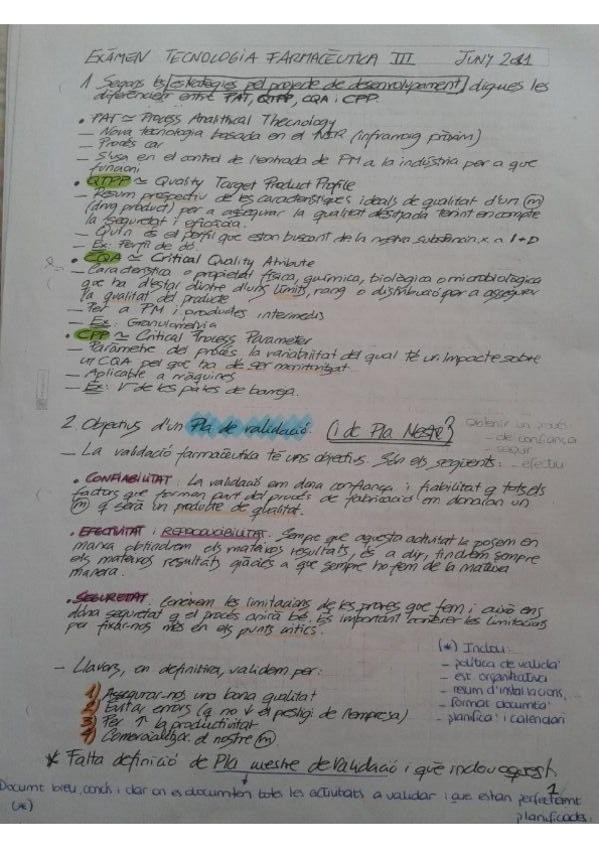 EXÀMEN TECNOLOGIA FARMACÈUTICA III JUNY 2011
1 Segons les estratègies pel projecte de desenvolupament, digues les
diferències entre PAT, QTPP, CQA i CPP.
• PAT ≃ Process Analitical Thecnology
— Nova tecnologia basada en el NIR (infraroig pròxim)
— Procés car
— S'usa en el control de l'entrada de PM a la indústria per a que
funcioni
• QTPP ≃ Quality Target Product Profile
— Resum prospectiu de les característiques ideals de qualitat d'un (m)
(drug product) per a assegurar la qualitat desitjada tenint en compte
la seguretat i eficàcia.
— Quin és el perfil que estan buscant de la nostra substància x a I+D
— Ex: Perfil de do.
• CQA ≃ Critical Quality Atribute
— Característica o propietat física, química, biològica o microbiològica
que ha d'estar dintre d'uns límits, rang o distribució per a assegurar
la qualitat del producte
— Per a PM i productes intermedis
— Ex: Granulometria
• CPP ≃ Critical Process Parameter
— Paràmetre del procés la variabilitat del qual té un impacte sobre
un CQA pel que ha de ser monitoritzat.
— Aplicable a màquines
— Ex: V de les pales de barreja.
2. Objectius d'un Pla de validació. (i de Pla Mestre?)
Obtenir un procés:
— de confiança
— segur
— efectiu
— La validació farmacèutica té uns objectius. Són els següents:
• CONFIABILITAT: La validació em dona confiança i fiabilitat q tots els
factors que formen part del procés de fabricació em donaran un
(m) q serà un producte de qualitat.
• EFECTIVITAT i REPRODUCIBILITAT: Sempre que aquesta activitat la posem en
marxa obtindrem els mateixos resultats, és a dir, tindrem sempre
els mateixos resultats gràcies a que sempre ho fem de la mateixa
manera.
• SEGURETAT: Coneixem les limitacions de les proves que fem i això ens
dóna seguretat q el procés anirà bé. És important conèixer les limitacions
per fixar-nos més en els punts crítics.
— Llavors, en definitiva, validem per:
1) Assegurar-nos una bona qualitat
2) Evitar errors (q no ↓ el prestigi de l'empresa)
3) Per ↑ la productivitat
4) Comercialitzar el nostre (m)
(*) Inclou:
— política de valida
— est. organitzativa
— resum d'instal·lacions,
— format documtia
— planifica i calendari
* Falta definició de Pla mestre de Validació i què inclou aquest.
1
Documt breu, concís i clar on es documten totes les activitats a validar i que estan perfectamt
(*) planificades.